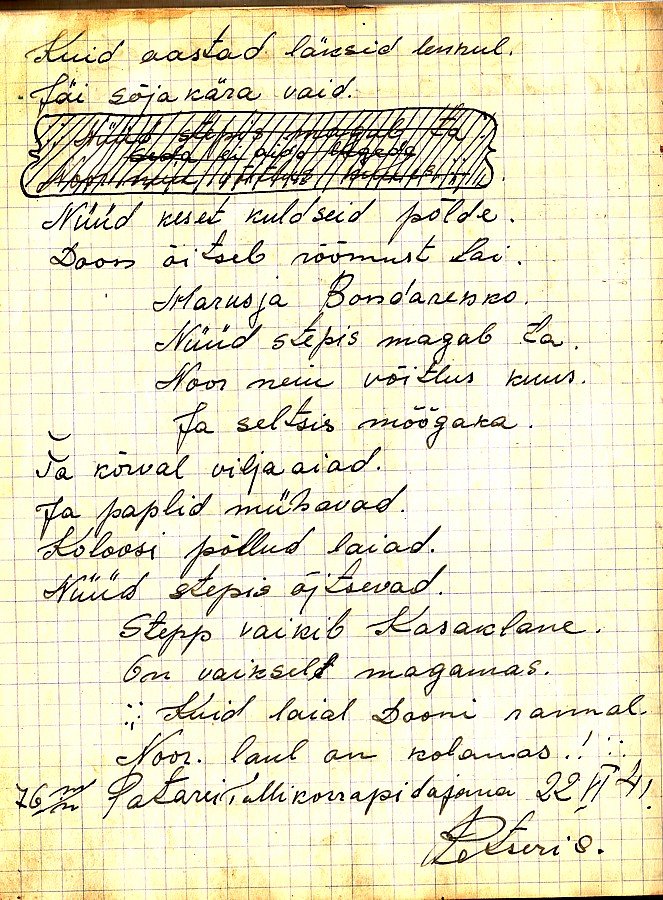 Kuid aastad läksid lennul.
Jäi sõja kära vaid.
Nüüd stepis magab ta
seda ei aida
Noor neiu võitlus
Nüüd keset kuldseid põlde.
Doon õitseb rõõmust lai.
Marusja Bondarenko.
Nüüd stepis magab ta.
Noor neiu võitlus kuus.
Ja seltsis mõõgaka.
Ta kõrval vilja aiad.
Ja paplid mühavad.
Koloosi põllud laiad.
Nüüd stepis õjtsevad.
Stepp vaikib Kasaklane.
On vaikselt magamas.
Kuid laial Dooni rannal.
Noor. laul on kolamas.!
76 m/m Patarei Tullikorrapidajana 22 VI 41.
Petseris.